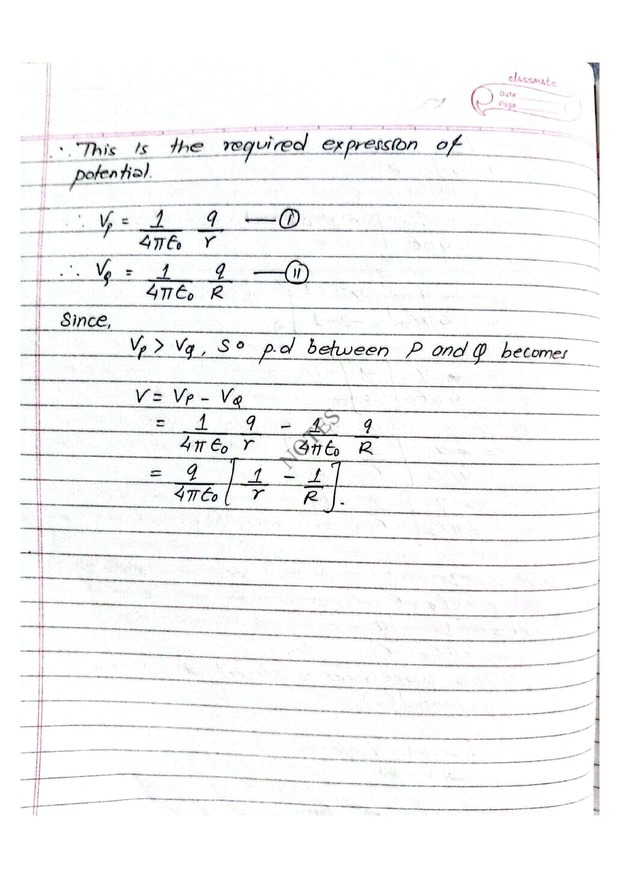 classmate
Date
Page
∴ This is the required expression of
potential.
∴ Vp = 1/4πϵ₀ q/r —— Ⓘ
∴ VQ = 1/4πϵ₀ q/R —— ⓘⓘ
Since,
Vp > VQ, so p.d between P and Q becomes
V = VP - VQ
= 1/4πϵ₀ q/r - 1/4πϵ₀ q/R
= q/4πϵ₀ [1/r - 1/R].
NOTES